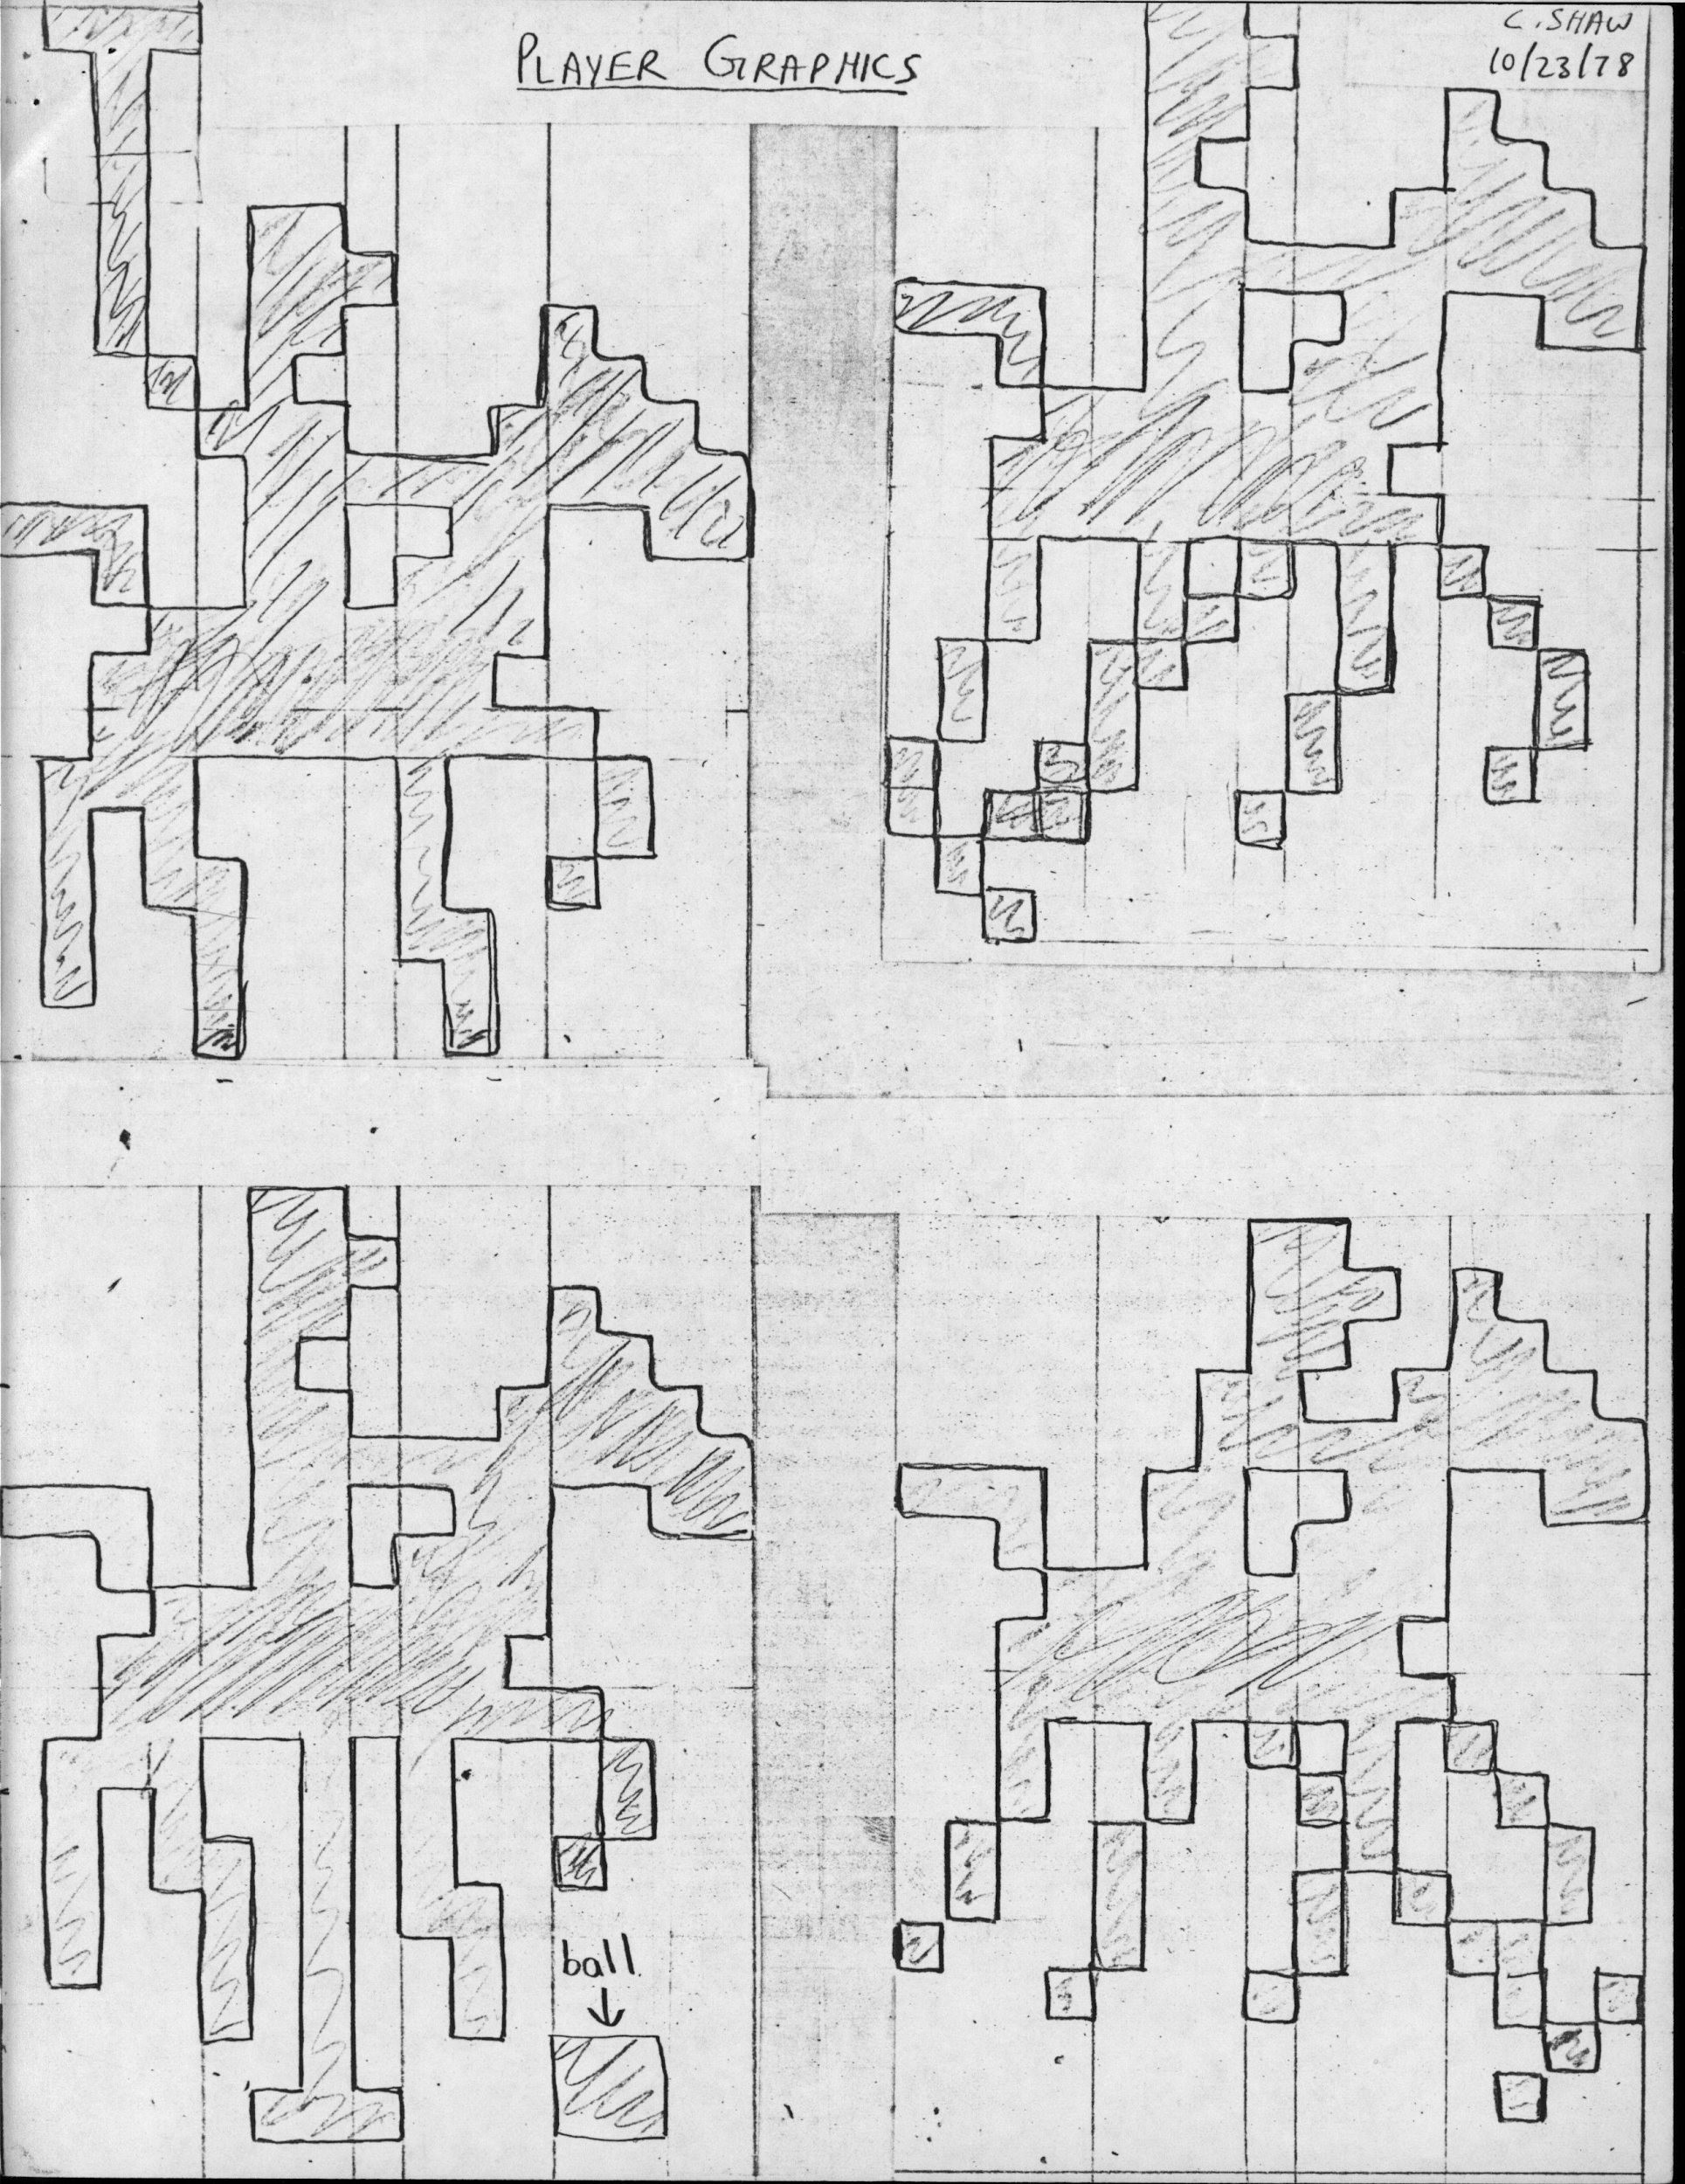 PLAYER GRAPHICS
C. SHAW
10/23/78
ball